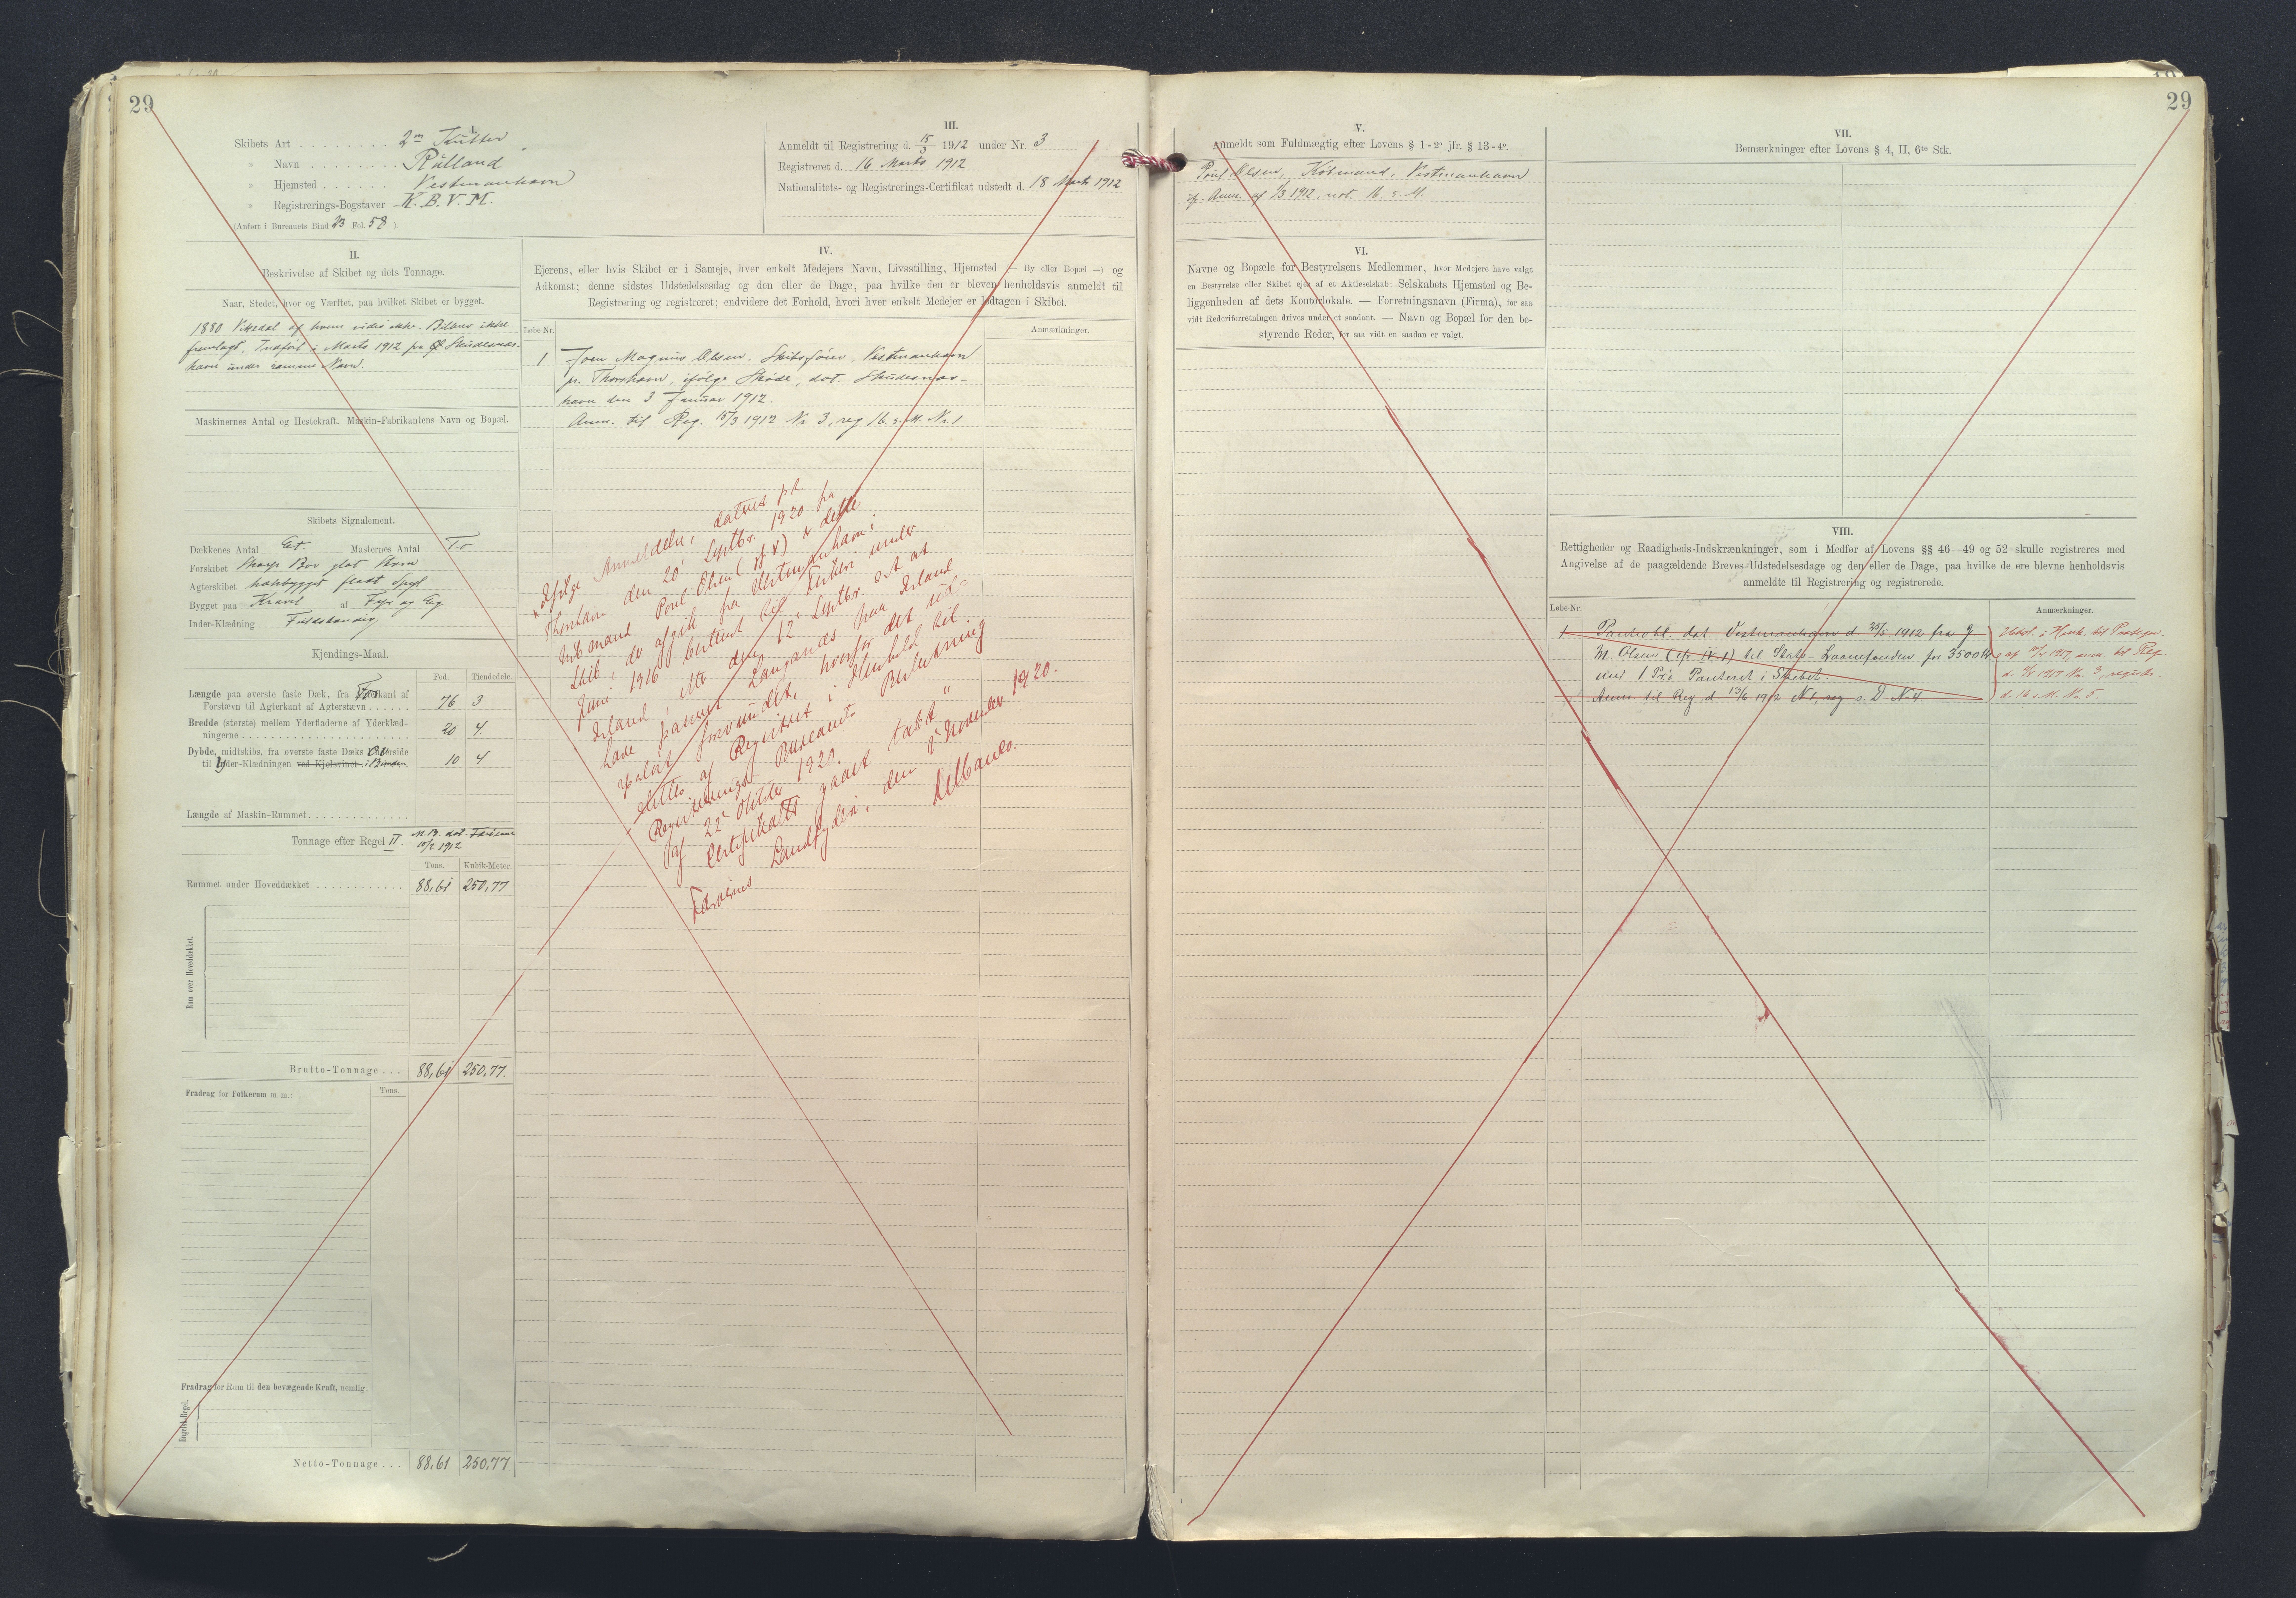 29
I.
Skibets Art . . . . . . . . 2m Kutter
» Navn . . . . . . . . Rutland
» Hjemsted . . . . . . Vestmanhavn
» Registrerings-Bogstaver K. B. V. M.
(Anført i Bureauets Bind 23 Fol. 58 ).
III.
Anmeldt til Registrering d. 15/3 1912 under Nr. 3
Registreret d. 16 Marts 1912
Nationalitets- og Registrerings-Certifikat udstedt d. 18 Marts 1912
II.
Beskrivelse af Skibet og dets Tonnage.
Naar, Stedet, hvor og Værftet, paa hvilket Skibet er bygget.
1880 Vikedal af hvem vides ikke. Bilbrev ikke
fremlagt. Indført i Marts 1912 fra Skudesnæs-
havn under samme Navn.
Maskinernes Antal og Hestekraft. Maskin-Fabrikantens Navn og Bopæl.
Skibets Signalement.
Dækkenes Antal Et. Masternes Antal To
Forskibet Skarp Bov glat Stævn
Agterskibet hækbygget fladt Spejl
Bygget paa Kravel af Fyr og Eg
Inder-Klædning Fuldstændig
Kjendings-Maal.
Fod. Tiendedele.
Længde paa øverste faste Dæk, fra Forkant af
Forstævn til Agterkant af Agterstævn . . . . . . 76 3
Bredde (største) mellem Yderfladerne af Yderklæd-
ningerne . . . . . . . . . . . . . 20 4.
Dybde, midtskibs, fra øverste faste Dæks Overside
til Yder-Klædningen ved Kjølsvinet 10 4
Længde af Maskin-Rummet . . . . . . . . . . . . .
Tonnage efter Regel II. M.B. dat. Færøerne
12/2 1912
Tons. Kubik-Meter.
Rummet under Hoveddækket . . . . . . . . . . . . 88,61 250,77
Rum over Hoveddækket.
Brutto-Tonnage . . . 88,61 250,77.
Fradrag for Folkerum m. m.:
Tons.
Fradrag for Rum til den bevægende Kraft, nemlig:
Engelsk Regel.
Netto-Tonnage . . . 88,61 250,77
IV.
Ejerens, eller hvis Skibet er i Sameje, hver enkelt Medejers Navn, Livsstilling, Hjemsted (— By eller Bopæl —) og
Adkomst; denne sidstes Udstedelsesdag og den eller de Dage, paa hvilke den er bleven henholdsvis anmeldt til
Registrering og registreret; endvidere det Forhold, hvori hver enkelt Medejer er lodtagen i Skibet.
Løbe-Nr.
Anmærkninger.
1 Joen Magnus Olsen, Skibsfører, Vestmanhavn
pr. Thorshavn, ifølge Skøde, dat. Skudesnæs-
havn den 3 Januar 1912.
Anm. til Reg. 15/3 1912 Nr. 3, reg 16. s. M. Nr. 1
Ifølge Anmeldelse, dateret pt.
Thorshavn den 20' Septbr. 1920 fra
Købmand Poul Olsen (jf. V) er dette
Skib, der afgik fra Vestmanhavn i
Juni 1916 bestemt til Fiskeri under
Island, efter den 12' Septbr. s. A. at
have passeret Langanæs paa Island
sporløst forsvundet, hvorfor det ud-
slettes af Registret i Henhold til
Registrerings-Bureauets Beslutning
af 22' Oktober 1920.
Certifikatet gaaet tabt "
Færøernes Landfogderi, den 5' November 1920.
29
V.
Anmeldt som Fuldmægtig efter Lovens § 1-2o jfr. § 13-4o.
Poul Olsen, Købmand, Vestmanhavn
if. Anm. af 1/3 1912, not. 16. s. M.
VI.
Navne og Bopæle for Bestyrelsens Medlemmer, hvor Medejere have valgt
en Bestyrelse eller Skibet ejes af et Aktieselskab; Selskabets Hjemsted og Be-
liggenheden af dets Kontorlokale. — Forretningsnavn (Firma), for saa
vidt Rederiforretningen drives under et saadant. — Navn og Bopæl for den be-
styrende Reder, for saa vidt en saadan er valgt.
VII.
Bemærkninger efter Lovens § 4, II, 6te Stk.
VIII.
Rettigheder og Raadigheds-Indskrænkninger, som i Medfør af Lovens §§ 46—49 og 52 skulle registreres med
Angivelse af de paagældende Breves Udstedelsesdage og den eller de Dage, paa hvilke de ere blevne henholdsvis
anmeldte til Registrering og registrerede.
Løbe-Nr.
Anmærkninger.
1 Panteobl. dat. Vestmanhavn d 25/5 1912 fra J
M. Olsen (cfr. IV-1) til Stats-Laanefonden for 3500 Kr.
med 1 Pr.s Panteret i Skibet.
Anm. til Reg. d. 13/6 1912 N 1, reg. s. D. N 4
Udsl. i Henh. til Paategn.